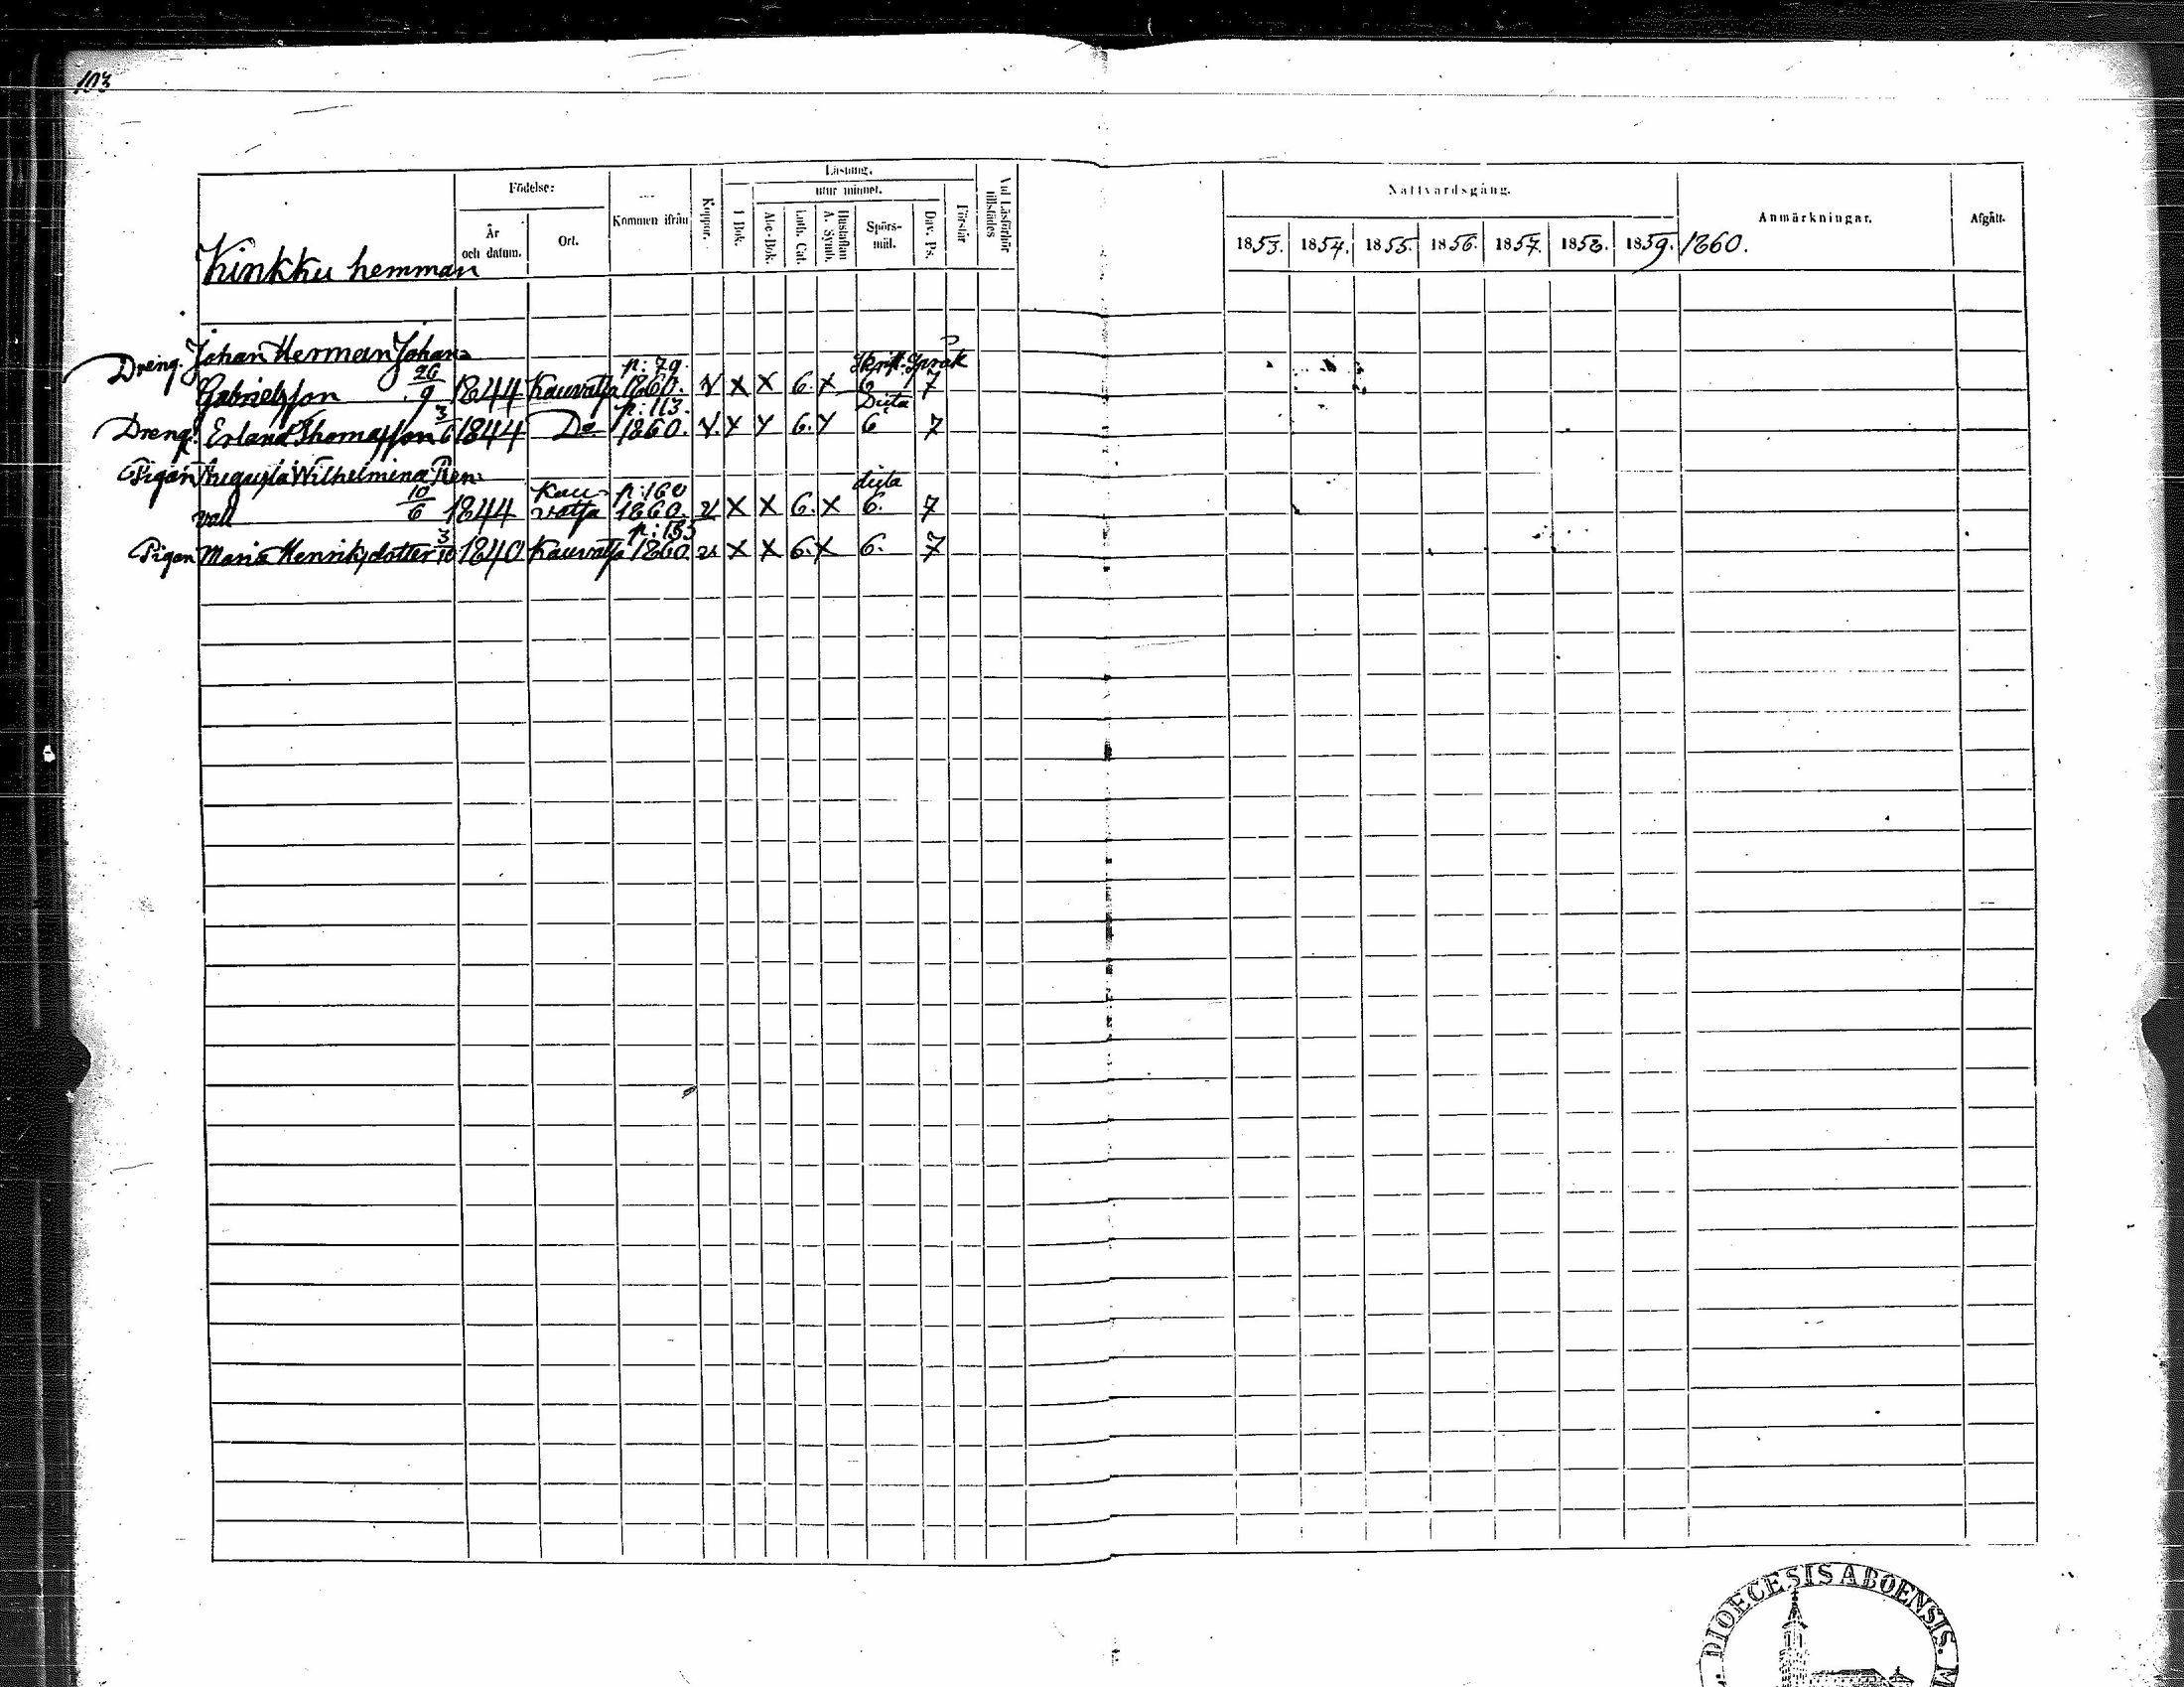 103
Kinkku hemman
Födelse:
År och datum.
Ort.
Kommen ifrån
Koppor.
Läsning.
utur minnet.
I Bok.
Abc-Bok.
Luth. Cat.
Hustaflan A. Symb.
Spörs-mål.
Dav. Ps.
Förstår
Vid Läsförhör tillstädes
Nattvardsgång.
1853. 1854. 1855. 1856. 1857. 1858. 1859. 1860.
Anmärkningar.
Afgått.
Dreng. Johan Herman Johan=
p: 79. Skrift. Språk
Gabrielsson 26/9 1844 Kauvatsa 1860. v X X 6. X 6 7
p: 113. Dicta
Dreng. Erland Thomasson 3/6 1844 Do 1860. v. X X 6. X 6 7
Pigan Augusta Wilhelmina Ren=
Kau= p: 160 dicta
vall 10/6 1844 vatsa 1860. v X X 6. X 6. 7
p: 155
Pigan Maria Henriksdotter 3/10 1840 Kauvatsa 1860. v X X 6. X 6. 7
DIOECESIS ABOENSIS. M